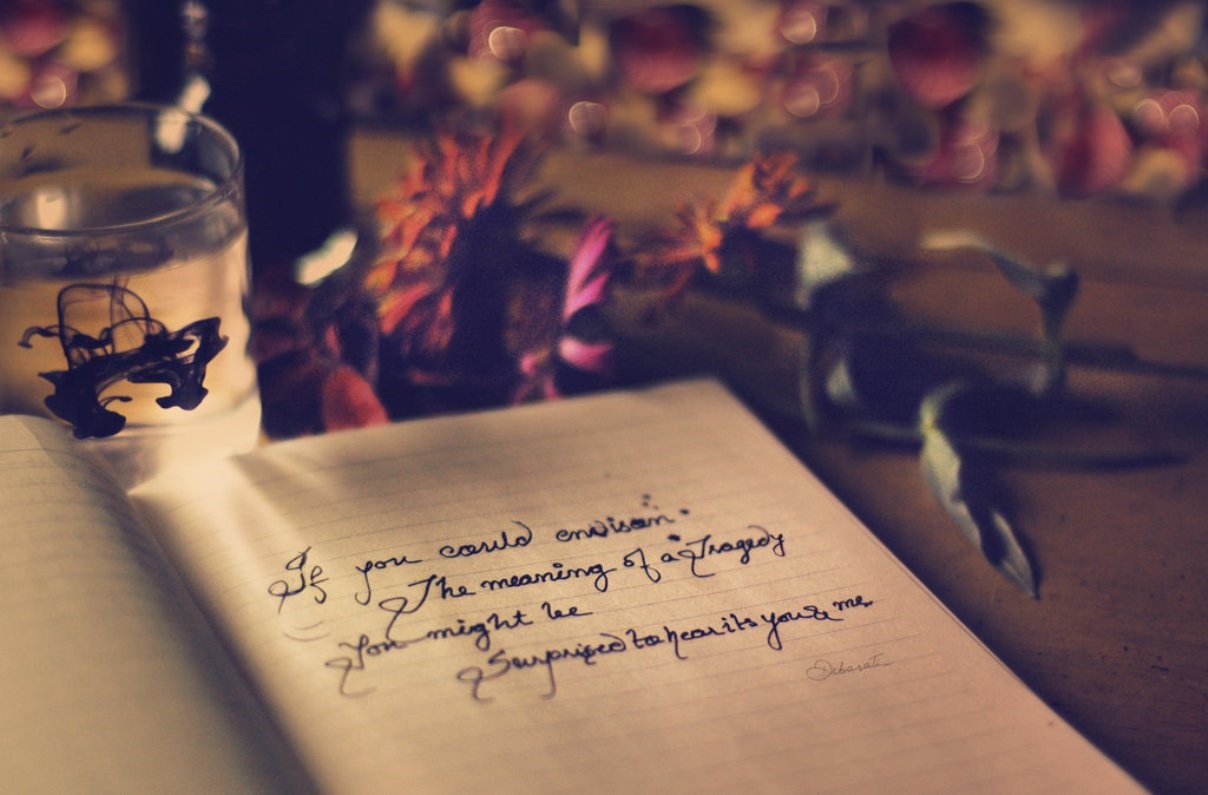 If you could envison
The meaning of a Tragedy
You might be
Surprised to hear its you & me
Debarati